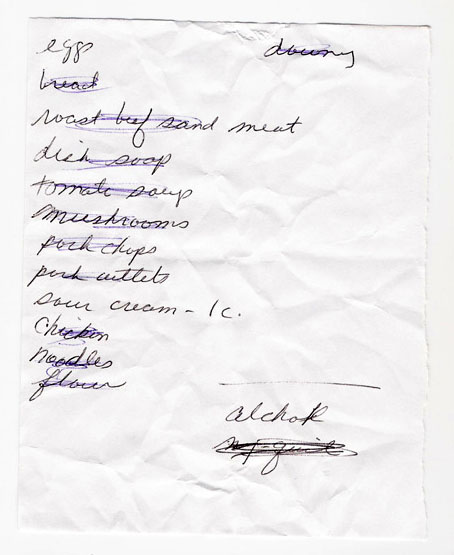 eggs
downy
bread
roast beef sand meat
dish soap
tomato soup
mushrooms
pork chops
pork cutlets
sour cream - 1c.
Chicken
Noodles
flour
alchok